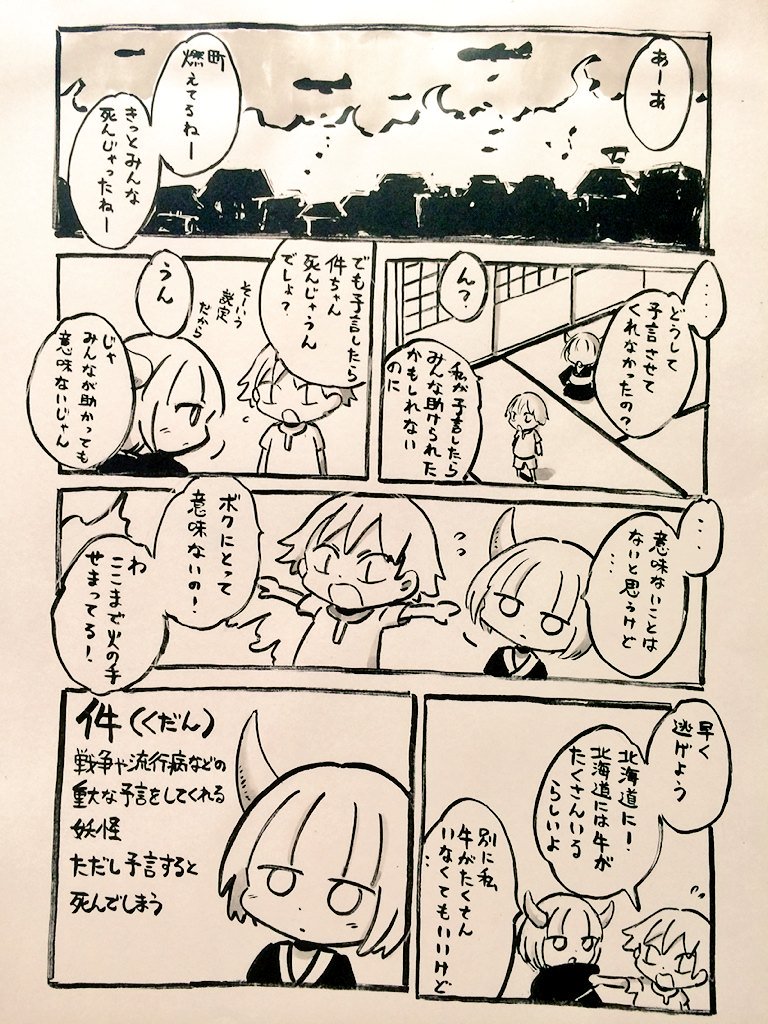 あーあ
町
燃えてるねー
きっとみんな
死んじゃったねー
‥‥
どうして
予言させて
くれなかったの?
ん?
私が予言したら
みんな助けられた
かもしれない
のに
でも予言したら
件ちゃん
死んじゃうん
でしょ?
うん
そーいう
設定
だから
じゃ
みんなが助かっても
意味ないじゃん
…
意味ないことは
ないと思うけど
…
ボクにとって
意味ないの!
わ
ここまで火の手
せまってる!
早く
逃げよう
北海道に!
北海道には牛が
たくさんいる
らしいよ
別に私
牛がたくさん
いなくてもいいけど
…
件(くだん)
戦争や流行病などの
重大な予言をしてくれる
妖怪
ただし予言すると
死んでしまう